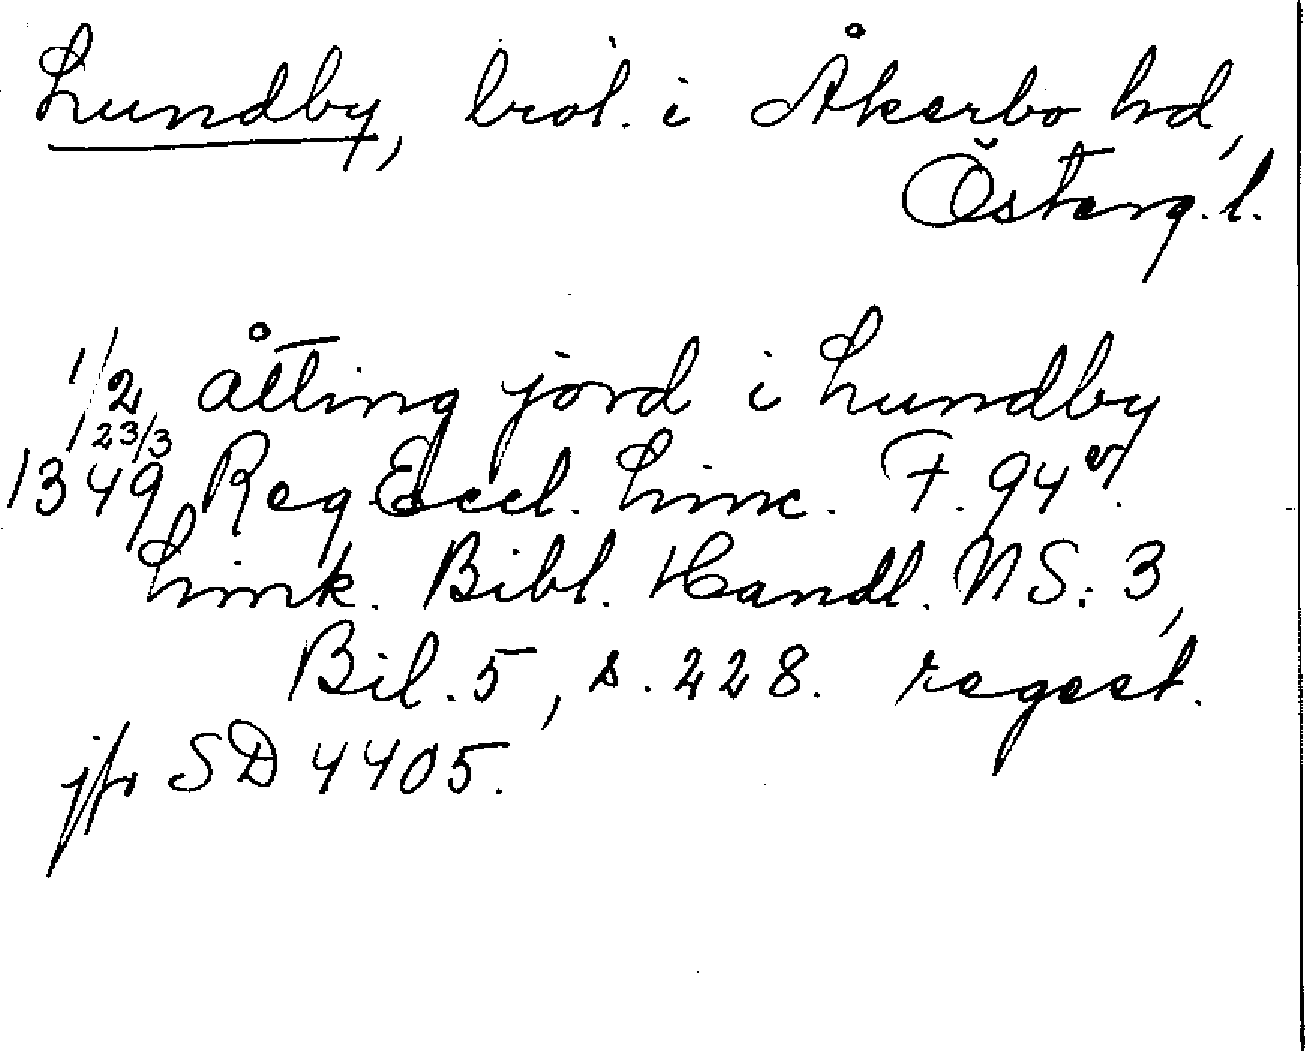 Lundby, trol. i Åkerbo hd,
Österg. l.
1/2 åtting jord i Lundby
23/3
1349 Reg Eccl. Linc. F. 94v.
Link. Bibl. Handl. NS: 3,
Bil. 5, s. 228. regest.
jfr SD 4405.